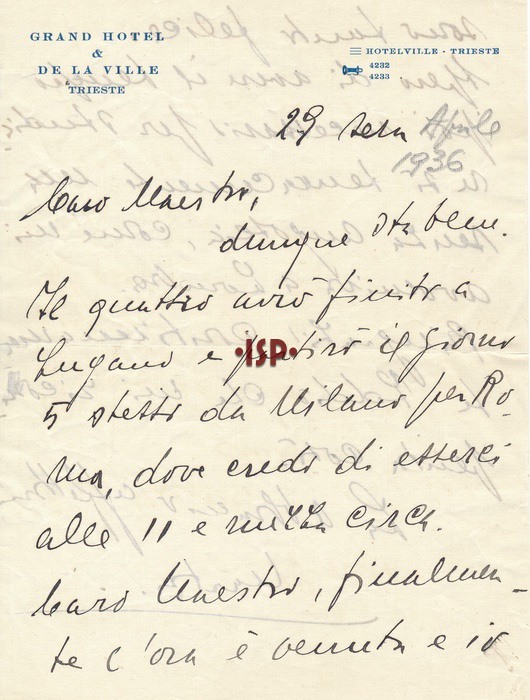 GRAND HOTEL
&
DE LA VILLE
TRIESTE
HOTELVILLE · TRIESTE
4232
4233
29 sera Aprile
1936
Caro Maestro,
dunque sta bene.
Il quattro avrò finito a
Lugano e partirò il giorno
·ISP·
5 stesso da Milano per Ro-
ma, dove credo di esserci
alle 11 e mezza circa.
Caro Maestro, finalmen-
te l'ora è venuta e io